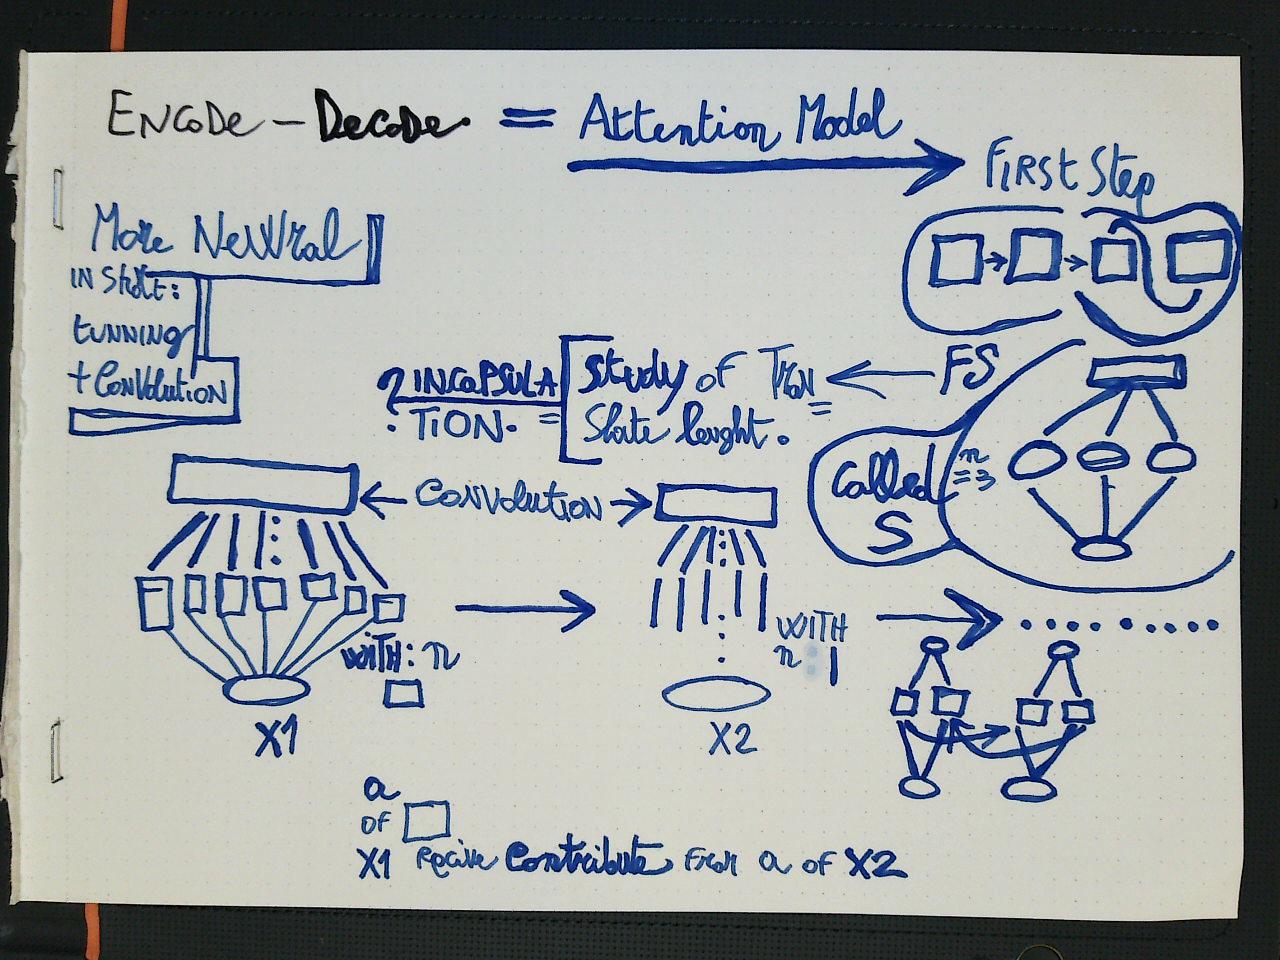 ENCODE - DECODE = Attention Model
FIRST Step
More NeWral
IN State:
tUNNING
+ CONVOLUtION
? INCAPSULA
TION. =
Study of Tran
State lenght.
FS
Called
S
n
= 3
CONVOLUTION
WITH: n
WITH
n : 1
X1
X2
a
OF
X1 Recive Contribute From a of X2